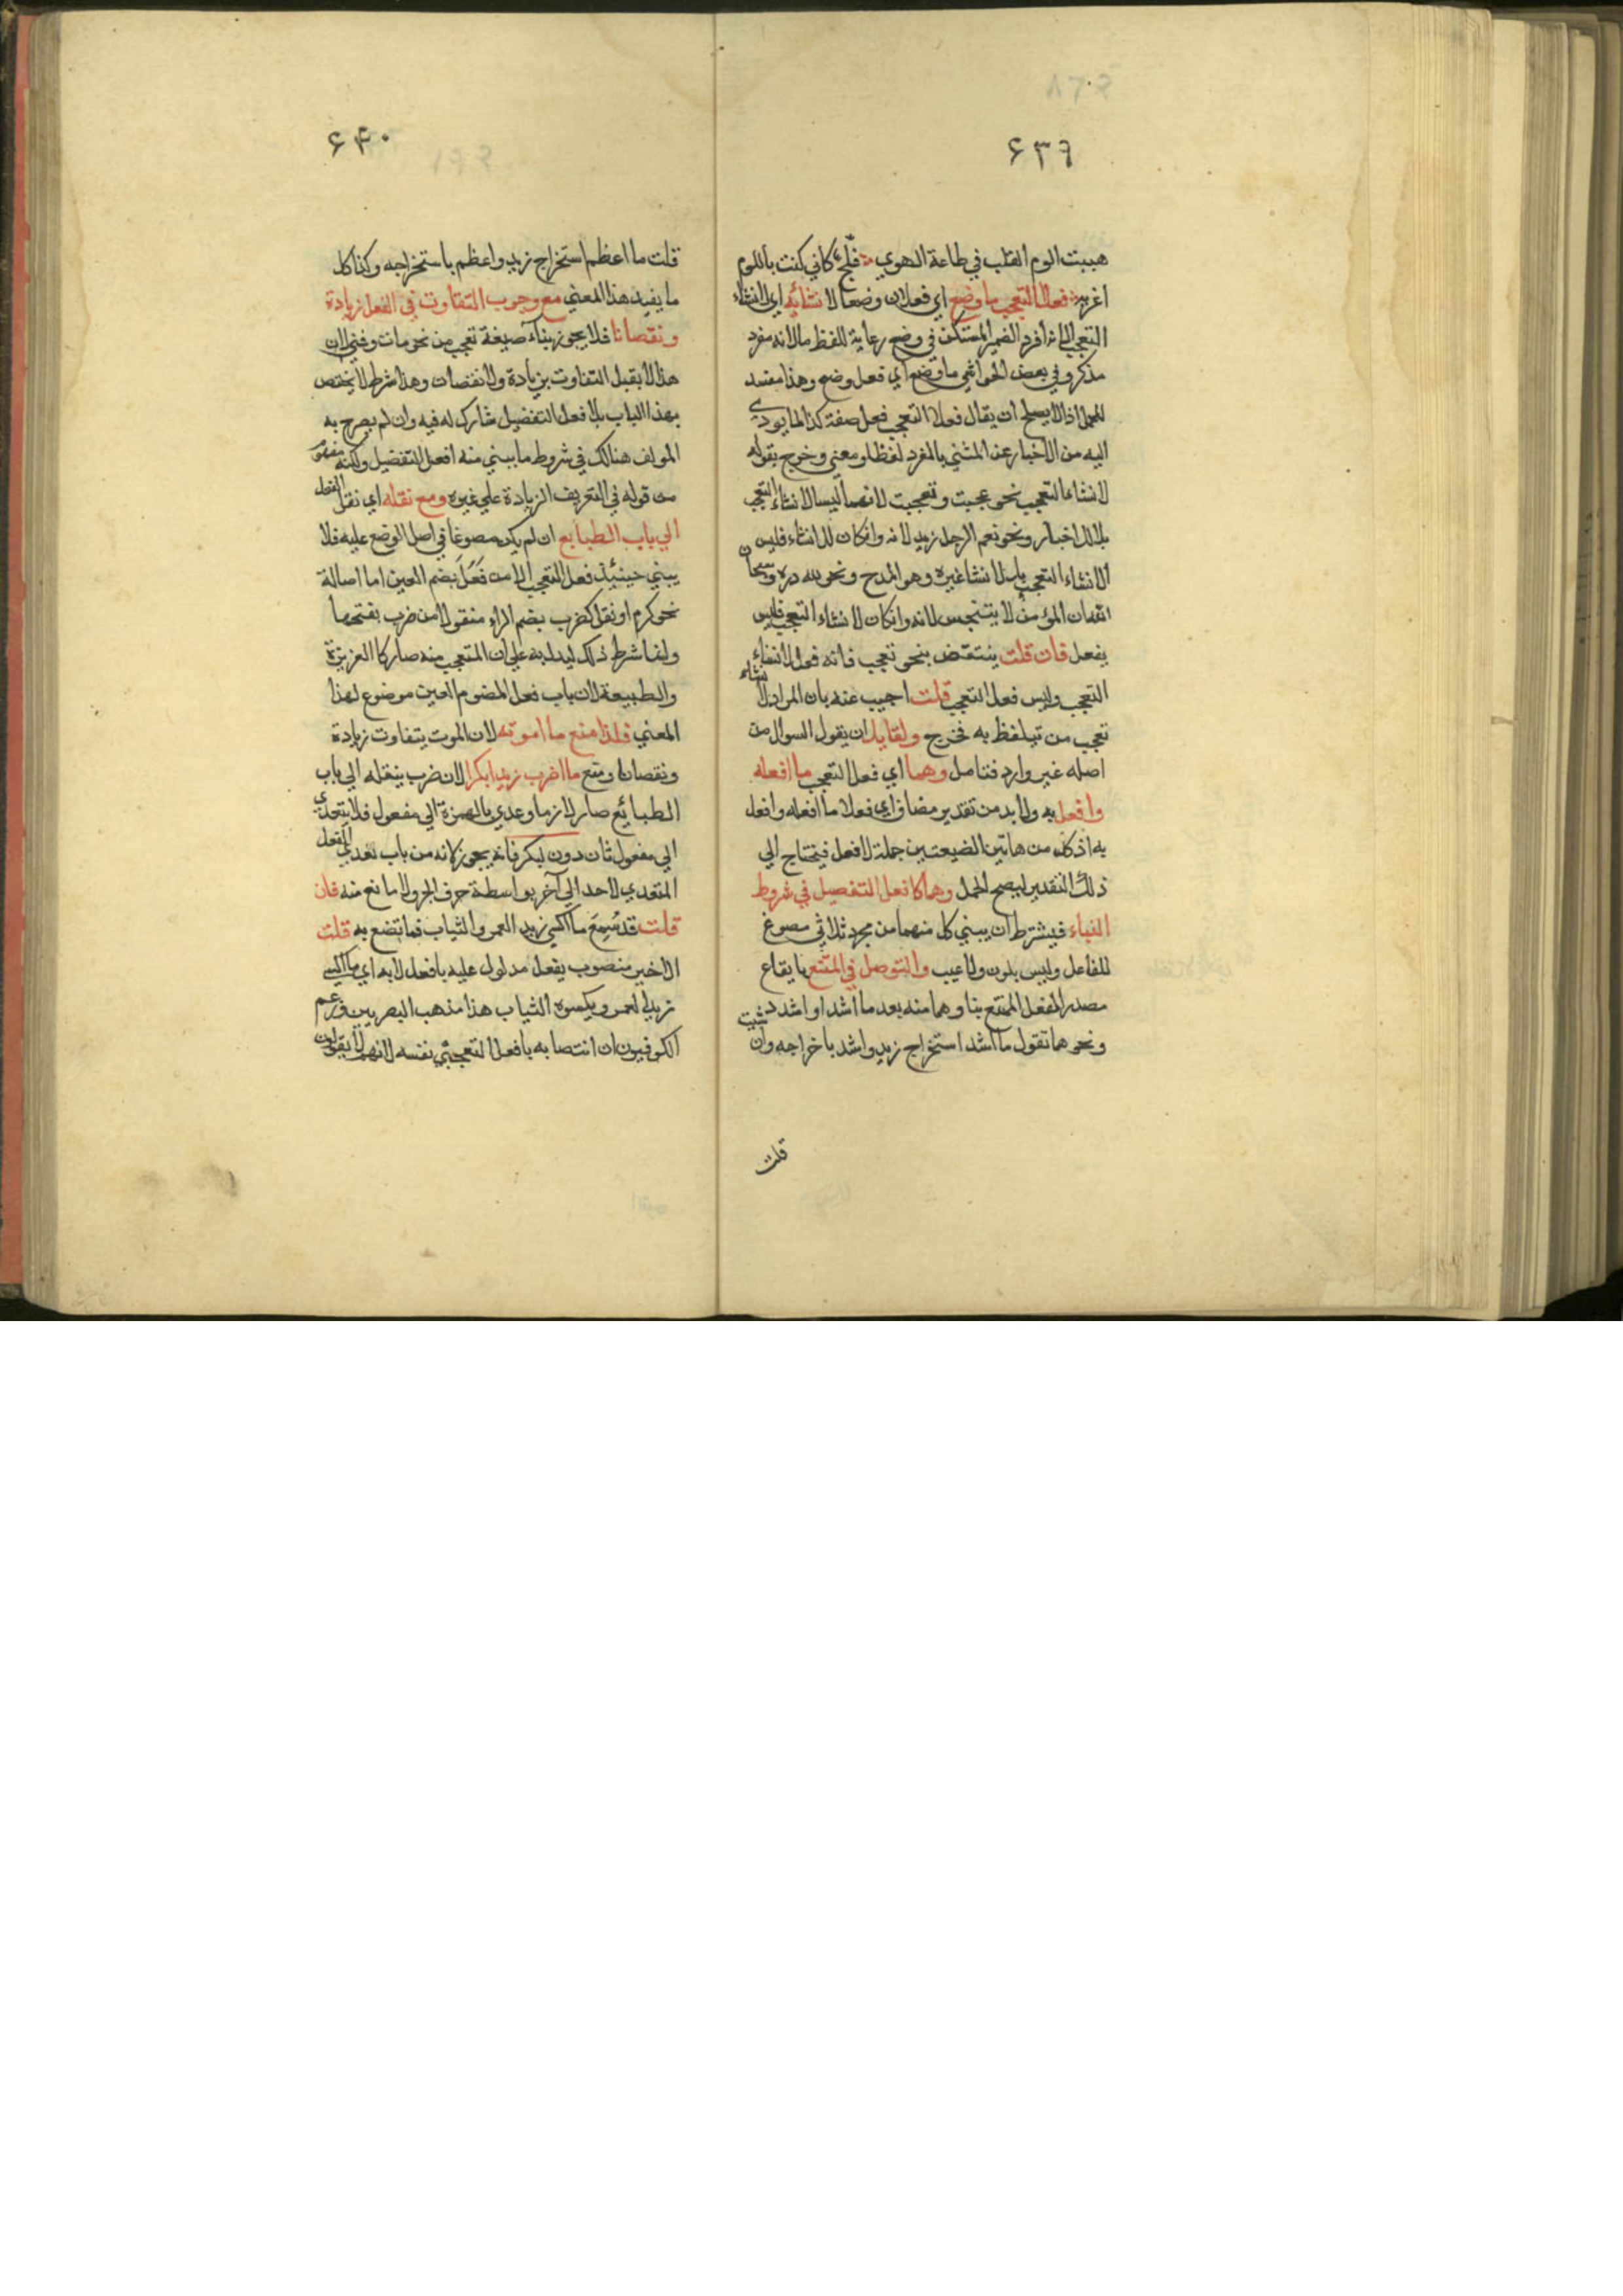 ٦٣٩
هببت الوم القلب في طاعة الهوي فلج كاني كنت باللوم
اغريه فعلا التعجب ما وضع اي فعلان وضعا لا نشائه اي لانشاء
التعجب الا انه افرد الضمير المستكن في وضع رعاية للفظ ما لانه مفرد
مذكر وفي بعض الحواشي ما وضع اي فعل وضع وهذا مفسد
للحمل اذ لا يصلح ان يقال فعلا التعجب فعل صفته كذا لما يودي
اليه من الاخبار عن المثني بالمفرد لفظا ومعني وخرج بقوله
لانشاء التعجب نحو عجبت وتعجبت لانهما ليسا لانشاء التعجب
بل للاخبار ونحو نعم الرجل زيد لانه وان كان للانشاء فليس
لانشاء التعجب بل لانشا غيره وهو المدح ونحو لله دره وسبحان
الله ان المؤمن لا يتنجس لانه وان كان لانشاء التعجب فليس
بفعل فان قلت ينتقض بنحو تعجب فانه فعل لانشاء
التعجب وليس فعل التعجب قلت اجيب عنه بان المراد لانشاء
تعجب من تيلفظ به فخرج ولقايل ان يقول السوال من
اصله غير وارد فتامل وهما اي فعلا التعجب ما افعله
وافعل به ولا بد من تقدير مضاف اي فعلا ما افعله وافعل
به اذ كل من هاتين الضيعتين جملة لا فعل فيحتاج الي
ذلك التقدير ليصح الحمل وهما كافعل التفصيل في شروط
البناء فيشترط ان يبني كل منهما من مجرد ثلاثي مصوغ
للفاعل وليس بلون ولا عيب والتوصل في الممتنع بايقاع
مصدر الفعل الممتنع بناوهما منه بعد ما اشد او اشدد
ونحوهما تقول ما اشد استخراج زيد واشد باخراجه وان شيت
قلت
٦٤٠
قلت ما اعظم استخراج زيد واعظم باستخراجه وكذا كل
ما يفيد هذا المعني مع وجوب التفاوت في الفعل زيادة
ونقصانا فلا يجوز بناء صيغة تعجب من نحو مات وفني لان
هذا لا يقبل التفاوت بزيادة ولا نقصان وهذا شرط لا يختص
بهذا الباب بل افعل التفضيل شارك له فيه وان لم يصرح به
المولف هنالك في شروط ما يبني منه افعل التفضيل ولكنه مفهوم
من قوله في التعريف الزيادة علي غيره ومع نقله اي نقل الفعل
الي باب الطبايع ان لم يكن مصوغا في اصل الوضع عليه فلا
يبني حينئذ فعل التعجب الا من فَعُلَ بضم العين اما اصالة
نحو كرم او نقل كضرب بضم الراء منقولا من ضرب بفتحها
وانما شرط ذلك ليدل به علي ان المتعجب منه صار كالغريزة
والطبيعة لان باب فعل المضموم العين موضوع لهذا
المعني فلذا منع ما اموته لان الموت يتفاوت زيادة
ونقصانا ومنع ما اضرب زيدا بكرا لان ضرب بنقله الي باب
الطبايع صار لازما وعدي بالهمزة الي مفعول فلا يتعدي
الي مفعول ثان دون لبكر فانه يجوز لانه من باب تعدي الفعل
المتعدي لاحد الي آخر بواسطة حرف الجر ولا مانع منه فان
قلت قد سُمِعَ ما اكسي زيد العمر والثياب فما تضع به قلت
الاخير منصوب بفعل مدلول عليه بافعل لا به اي ما اكسي
زيدا لعمر ويكسوه الثياب هذا مذهب البصريين وزعم
الكوفيون ان انتصابه بافعل التعجبي نفسه لانهم لا يقولون